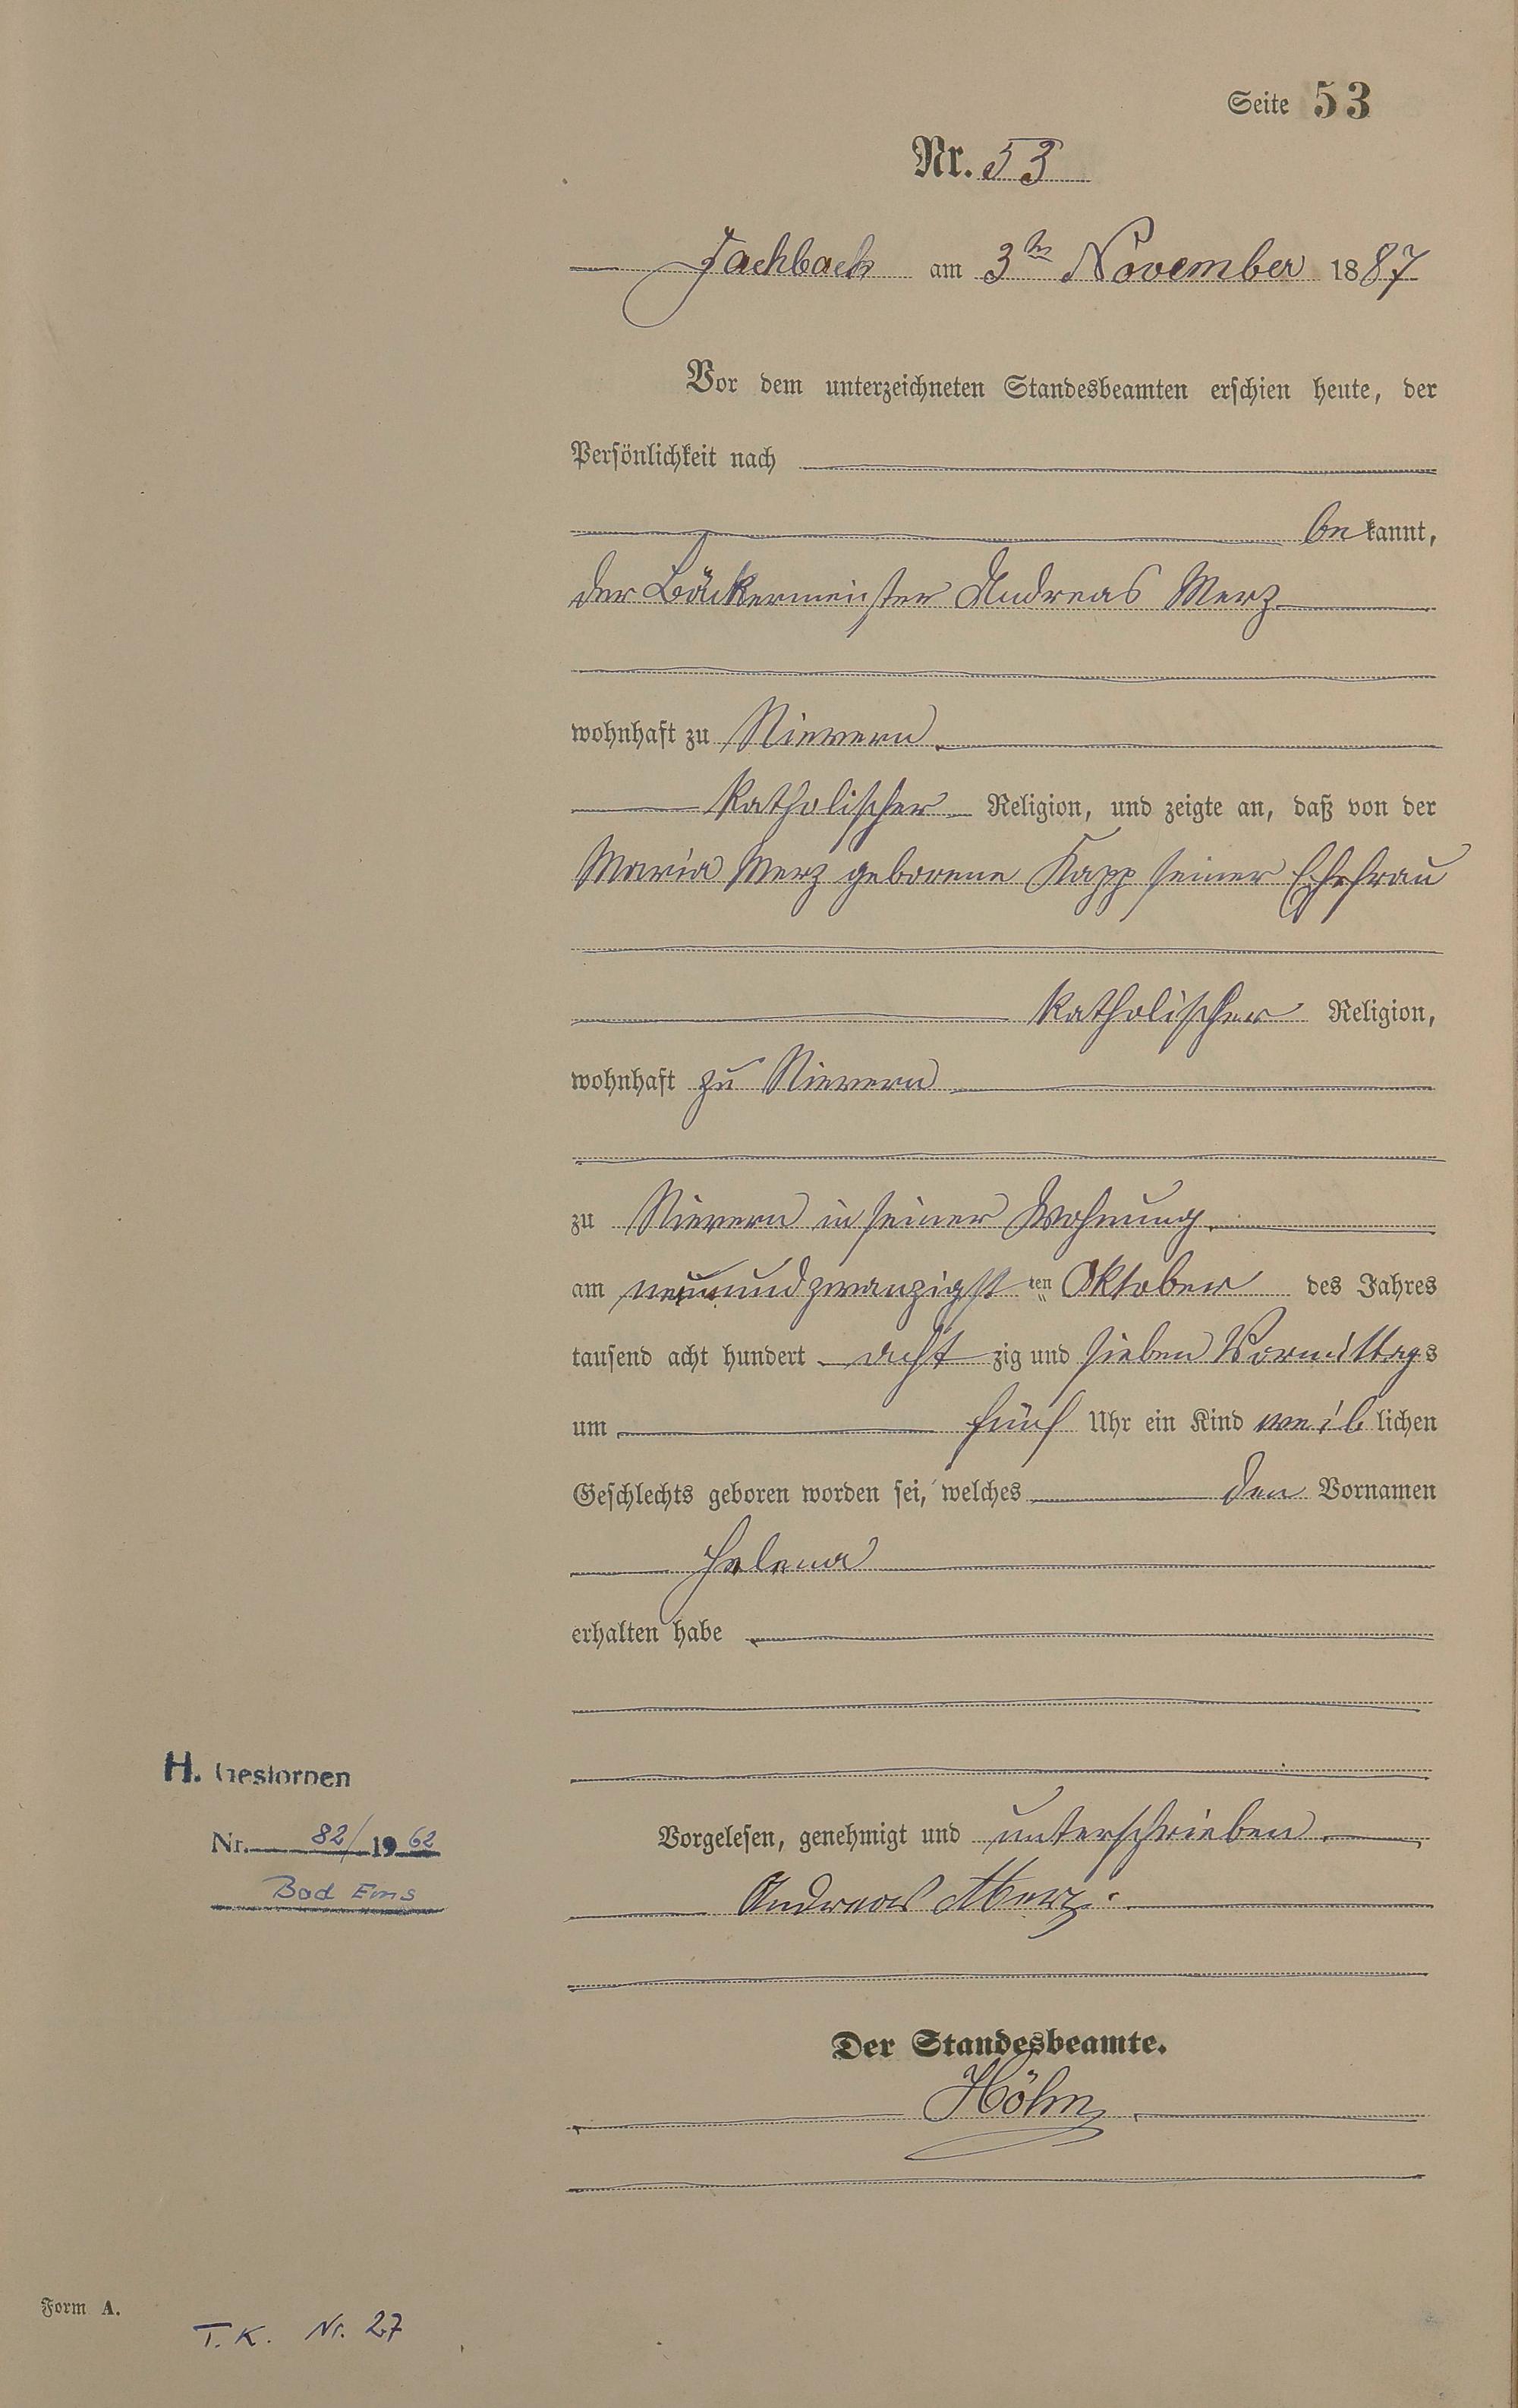 Seite 53
Nr. 53
Fachbach am 3ten November 1887
Vor dem unterzeichneten Standesbeamten erschien heute, der
Persönlichkeit nach
bekannt,
der Bäckermeister Andreas Merz
wohnhaft zu Nievern
katholischer Religion, und zeigte an, daß von der
Maria Merz geborene Kapp seiner Ehefrau
katholischer Religion,
wohnhaft zu Nievern
zu Nievern in seiner Wohnung
am neunundzwanzigsten Oktober des Jahres
tausend acht hundert acht zig und sieben Vormittags
um fünf Uhr ein Kind weiblichen
Geschlechts geboren worden sei, welches den Vornamen
Helena
erhalten habe
H. Gestorben
Nr. 82/1962
Bad Ems
Vorgelesen, genehmigt und unterschrieben.
Andreas Merz.
Der Standesbeamte.
Höhn
Form A.
T.K. Nr. 27